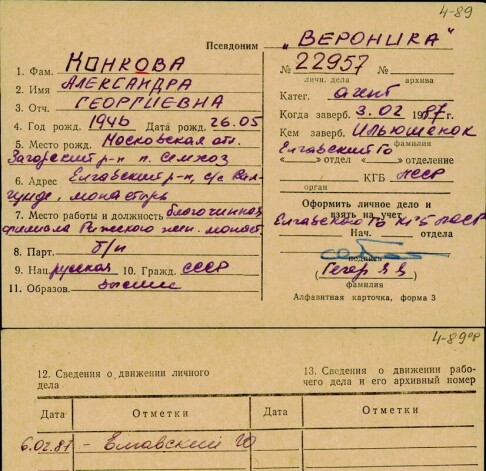 4-89
Псевдоним „ВЕРОНИКА"
1. Фам. КОНКОВА
2. Имя АЛЕКСАНДРА
3. Отч. ГЕОРГИЕВНА
4. Год рожд. 1946 Дата рожд. 26.05
5. Место рожд. Московская обл.
Загорский р-н п. Семхоз
6. Адрес Елгавский р-н, с/с Вал-
гунде, монастырь
7. Место работы и должность благочинная
филиала Рижского жен. монаст.
8. Парт. б/п
9. Нац. русская 10. Гражд. СССР
11. Образов. высшее
№ 22957 №
личн. дела архива
Катег. агент
Когда заверб. 3.02 1987 г.
Кем заверб. Ильюшенок
фамилия
Елгавский ГО
« » отдел « » отделение
КГБ ЛССР
орган
Оформить личное дело и
взять на учет
Елгавского ГО КГБ ЛССР
Нач. отдела
подпись
(Гегер Я Я)
фамилия
Алфавитная карточка, форма 3
4-89об
12. Сведения о движении личного
дела
13. Сведения о движении рабо-
чего дела и его архивный номер
Дата Отметки Дата Отметки
6.02.87 - Елгавский ГО